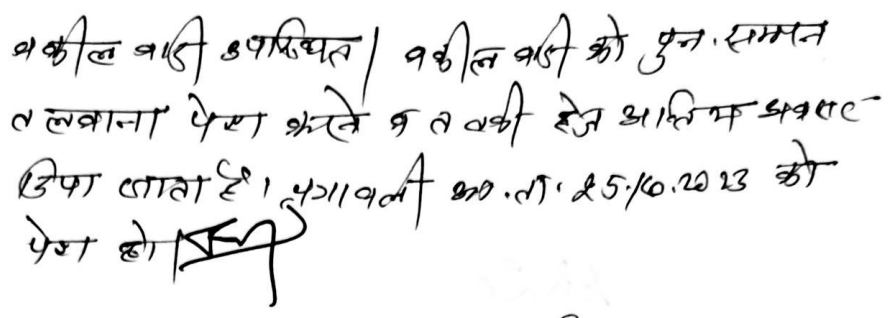 वकील वादी उपस्थित। वकील वादी को पुनः सम्मन
तलवाना पेश करने व तलबी हेतु अन्तिम अवसर
दिया जाता है। पत्रावली आ.ता. 25.10.2023 को
पेश हो।